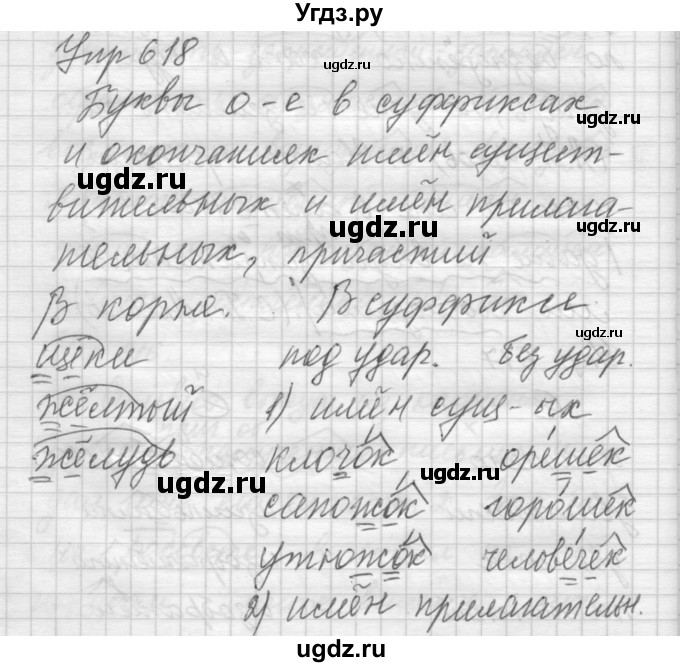 Угдз.ру
Упр 618
ugdz.ru
Буквы о-е в суффиксах
ugdz.ru
и окончаниях имён сущест-
ugdz.ru
вительных и имён прилага-
ugdz.ru
тельных, причастий
В корне. В суффиксе
ugdz.ru
щёки под удар. без удар.
жёлтый 1) имён сущ-ых
жёлудь клочок орешек
ugdz.ru ugdz.ru
сапожок горошек
ugdz.ru
утюжок человечек
ugdz.ru
2) имён прилагательн.
ugdz.ru